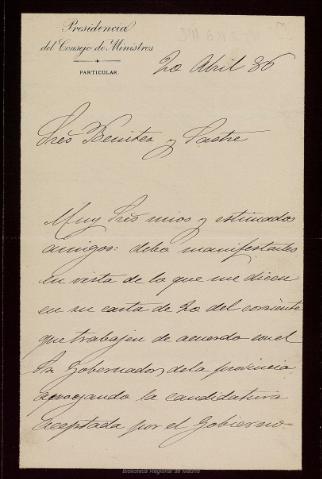 Presidencia
del Consejo de Ministros
PARTICULAR.
20 Abril 86
Sres Benitez y Sastre
Muy Sres mios y estimados
amigos: debo manifestarles
en vista de lo que me dicen
en su carta de 20 del corriente
que trabajen de acuerdo con el
Sr Gobernador de la provincia
apoyando la candidatura
aceptada por el Gobierno
Biblioteca Regional de Madrid